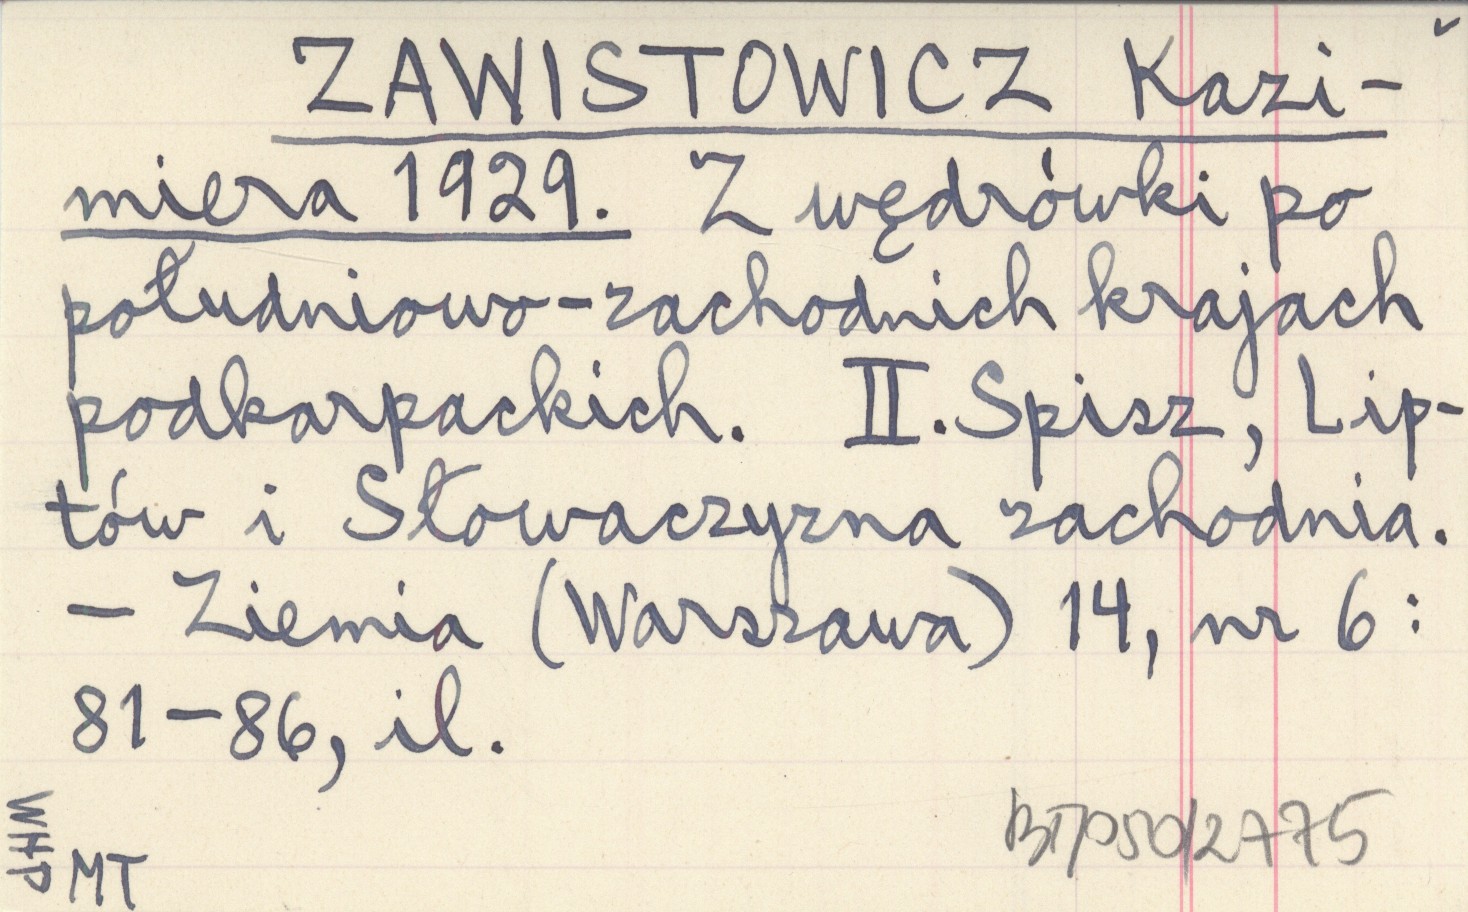 ZAWISTOWICZ Kazi-
miera 1929. Z wędrówki po
południowo-zachodnich krajach
podkarpackich. II. Spisz, Lip-
tów i Słowaczyzna zachodnia.
— Ziemia (Warszawa) 14, nr 6:
81-86, il.
WHP
MT